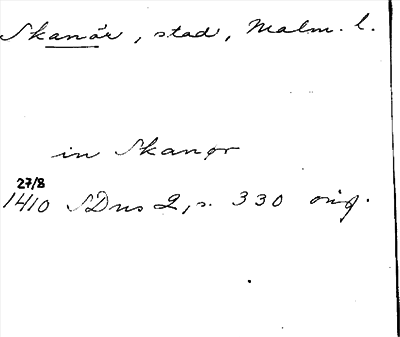 Skanör, stad, Malm. l.
in Skanør
27/8
1410 SDns 2, s. 330 orig.